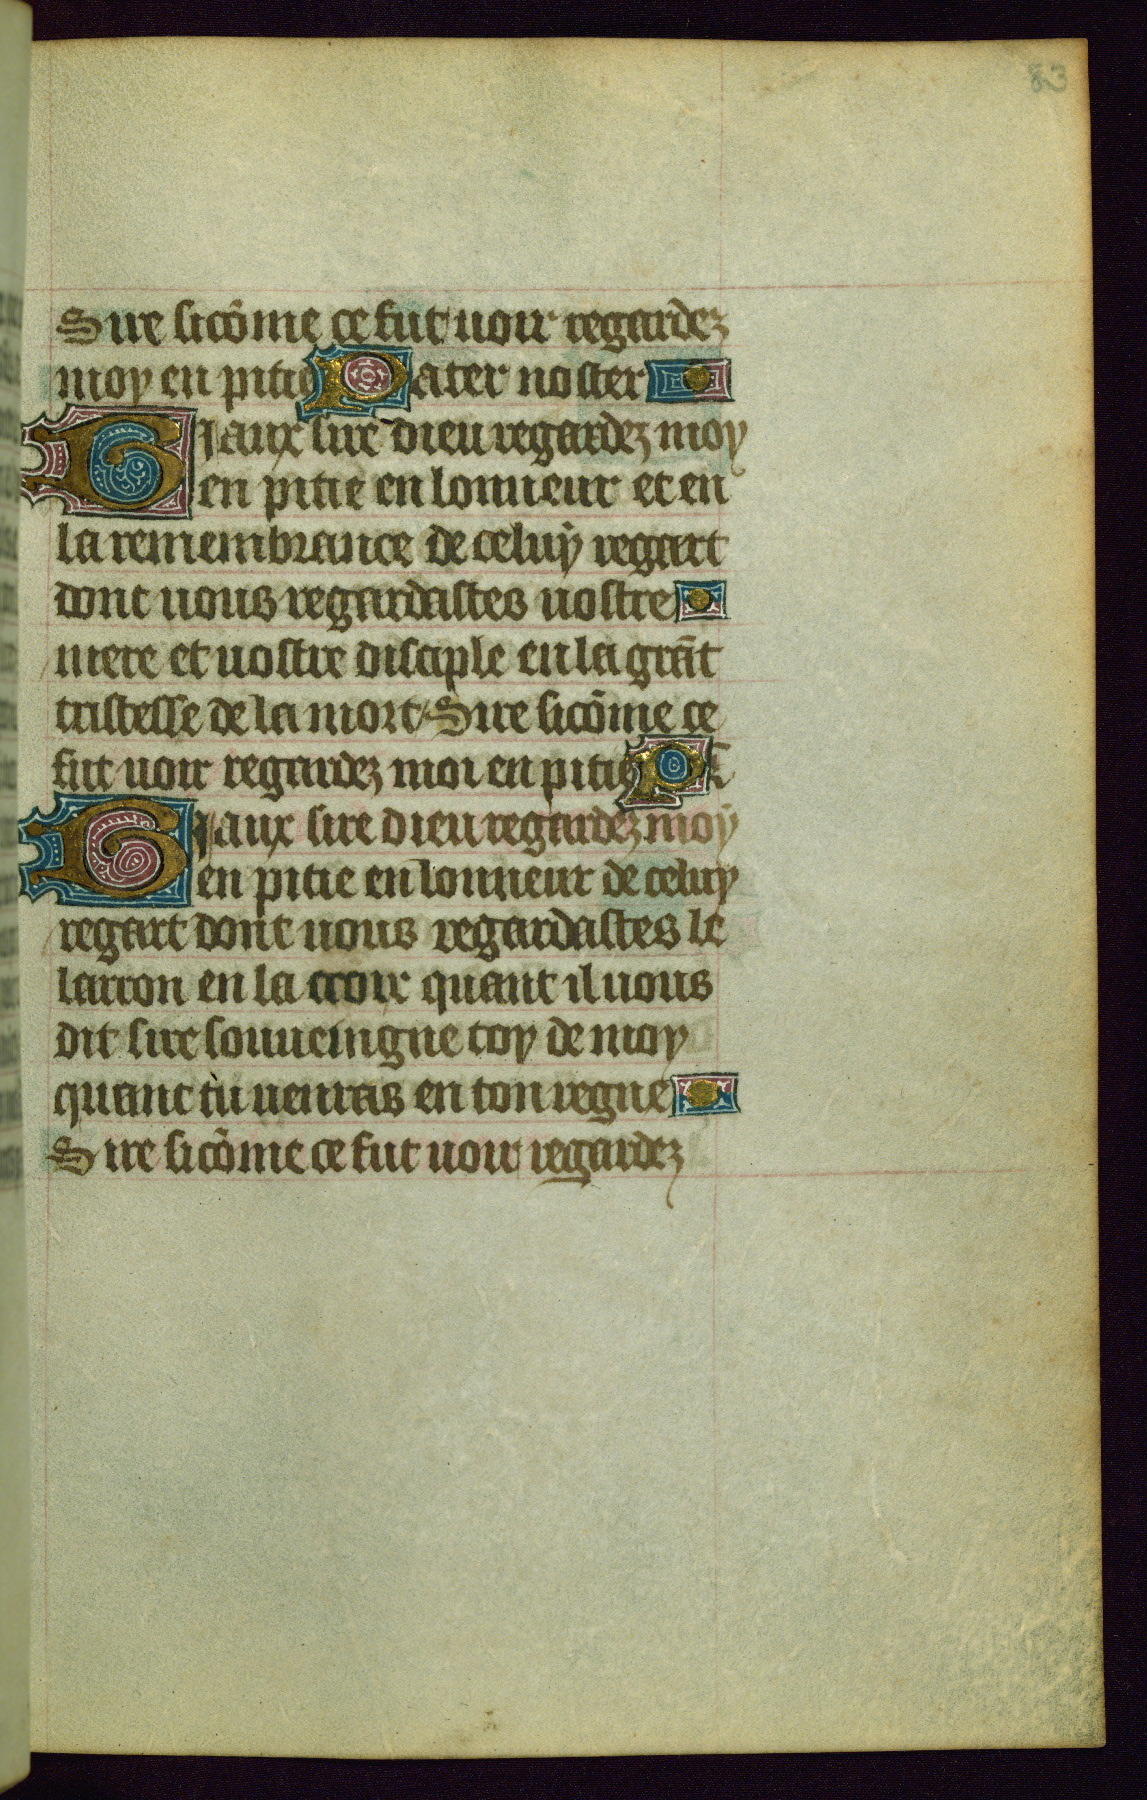 83
Sire sicõme ce fut uoir regardez
moy en pitie Pater noster
Biaux sire dieu regardez moy
en pitie en lonneur et en
la remembrance de celuy regart
dont uous regardastes uostre
mere et uostre disciple en la grãt
tristesse de la mort / Sire sicõme ce
fut uoir regardez moi en pitie P
Biaux sire dieu regardez moy
en pitie en lonneur de celuy
regart dont uous regardastes le
larron en la croix quant il uous
dit sire souueingne toy de moy
quant tu uenras en ton regne
Sire sicõme ce fut uoir regardez